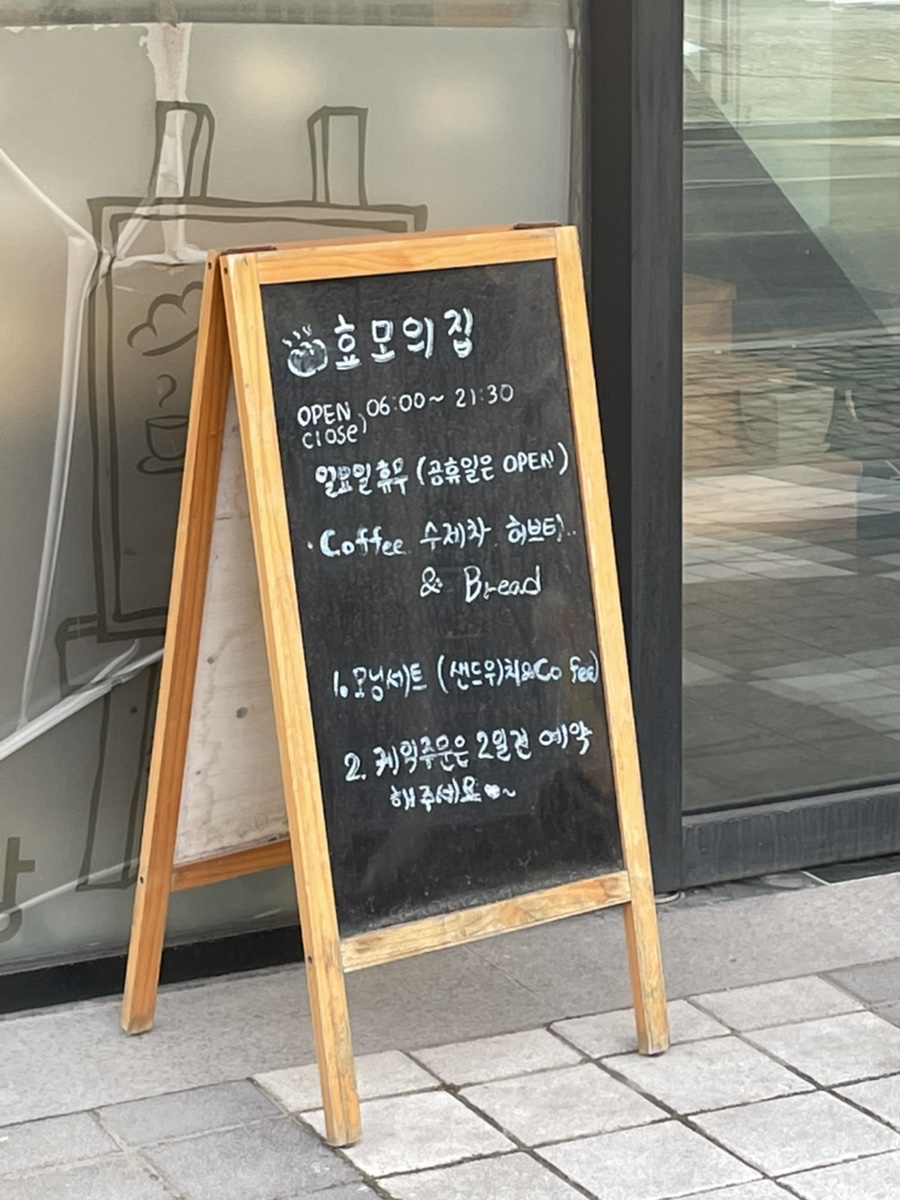 효모의집
OPEN 06:00~ 21:30
close)
일요일휴무 (공휴일은 OPEN)
· Coffee 수제차. 허브티..
& Bread
1. 모닝세트 (샌드위치&Co fee)
2. 케익주문은 2일전 예약
해주세요♥~